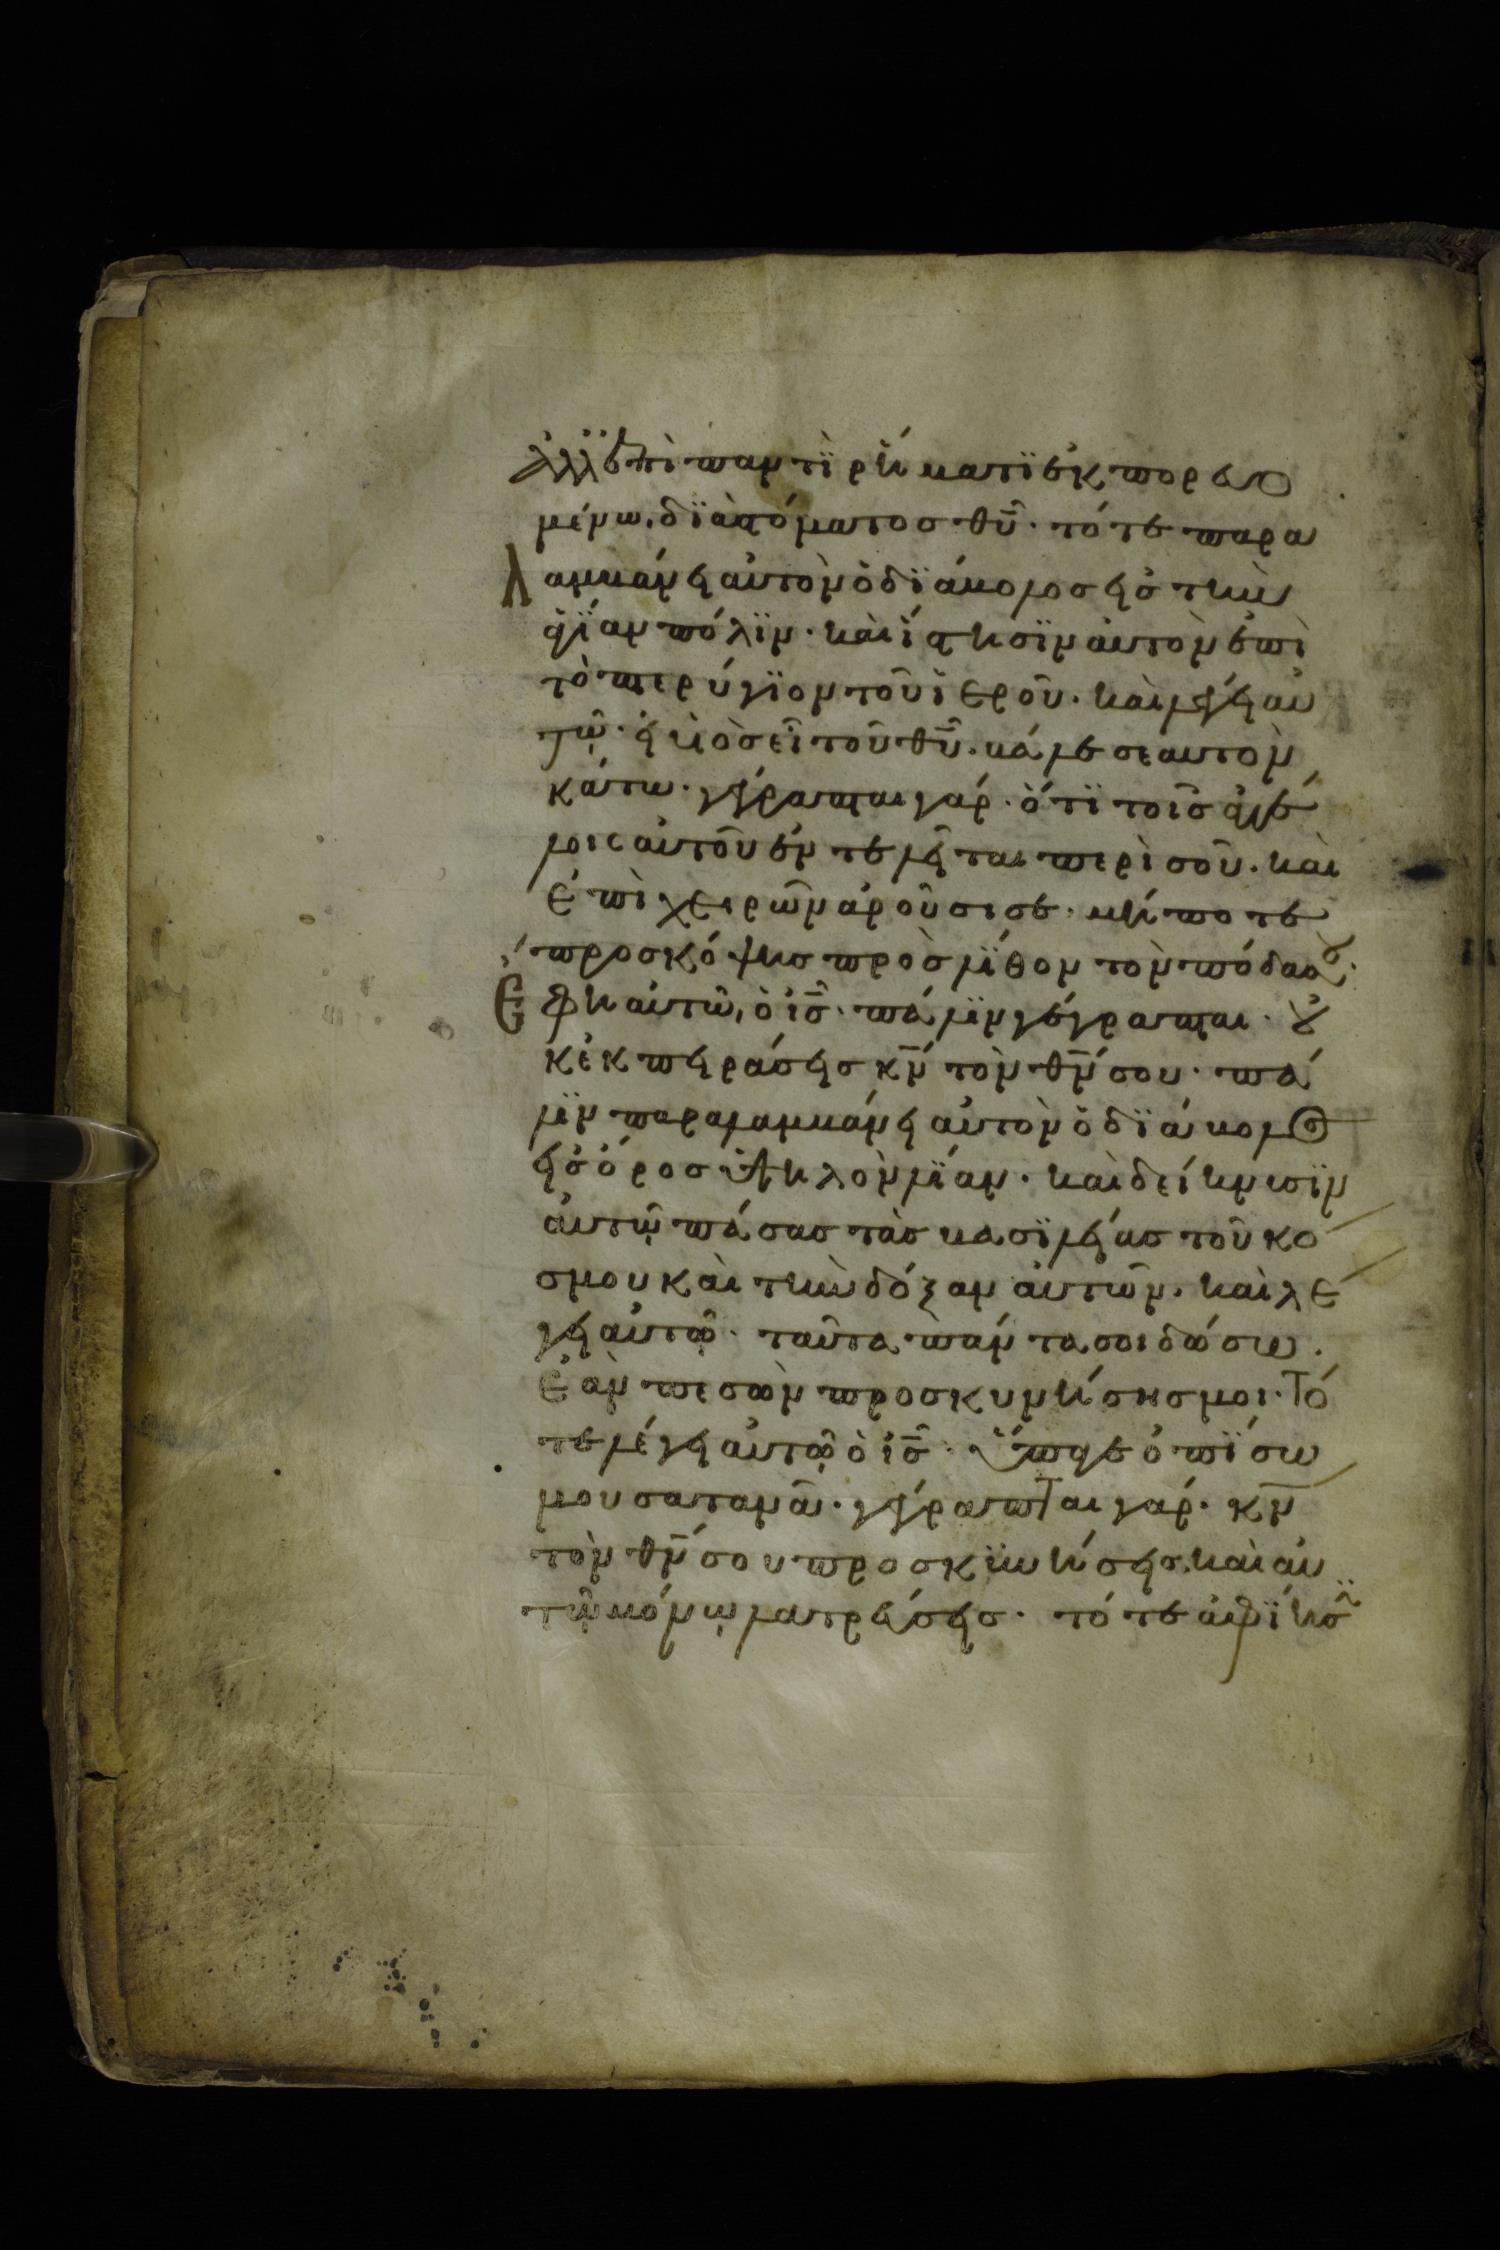 ἀλλ' ἐπὶ παντὶ ῥήματϊ ἐκπορευο
μένω, δϊὰ στόματοσ θῦ· τότε παρα
λαμβάνει αὐτὸν ὁ δϊάβολοσ εἰσ τὴν
ἁγίαν πόλϊν· καὶ ἵστησϊν αὐτὸν ἐπὶ
τὸ πτερύγϊον τοῦ ἱεροῦ· καὶ λέγει αὐ
τῷ· εἰ υἱὸσ εἶ τοῦ θῦ· βάλε σεαυτὸν
κάτω· γέγραπται γάρ· ὅτϊ τοῖσ ἀγγέ
λοις αὐτοῦ ἐντελεῖται περὶ σοῦ· καὶ
ἐπὶ χειρῶν ἀροῦσι σε· μήποτε
προσκόψησ πρὸσ λίθον τὸν πόδα σου·
Ἔφη αὐτῶ, ὁ ἰσ· πάλϊν γέγραπται· οὐ
κ ἐκπειράσεισ κν τὸν θν σου· πά
λϊν παραλαμβάνει αὐτὸν ὁ δϊάβολος
εἰσ ὄροσ ὑψηλὸν λϊαν· καὶ δείκνυσϊν
αὐτῷ πάσασ τὰσ βασϊλείασ τοῦ κό
σμου καὶ τὴν δόξαν αὐτῶν· καὶ λέ
γει αὐτῷ· ταῦτα πάντα σοι δώσω·
ἐὰν πεσὼν προσκυνήσησ μοι· Τό
τε λέγει αὐτῷ ὁ ἰσ· ὕπαγε ὀπϊσω
μου σατανᾶ· γέγραπται γάρ· κν
τὸν θν σου προσκϋνήσεισ· καὶ αὐ
τῷ μόνῳ λατρεύσεισ· τότε ἀφϊησϊν